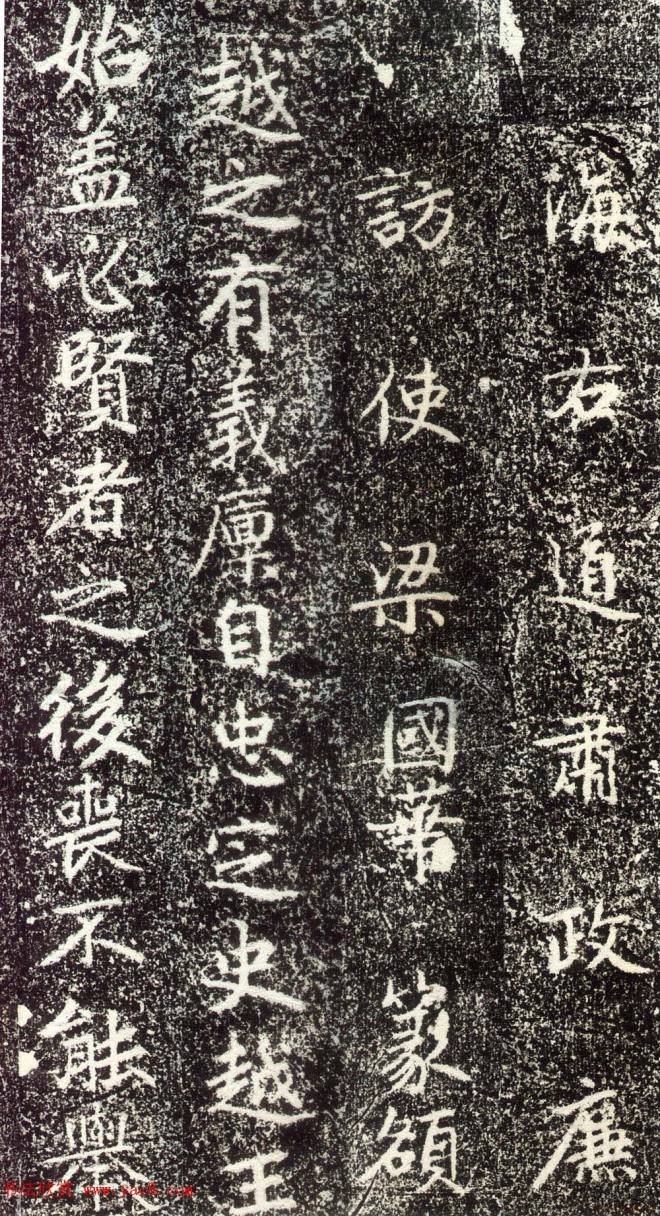 海右道肅政廉
訪使梁國華篆額
越之有義廩自忠定史越王
始盖必賢者之後喪不能舉
www.yac8.com